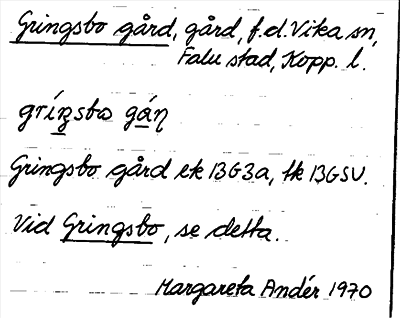 Gringsbo gård, gård, f.d. Vika sn,
Falu stad, Kopp. l.
gríŋsbω gáɳ
Gringsbo gård ek 13G3a, tk 13GSV.
Vid Gringsbo, se detta.
Margareta Andér 1970